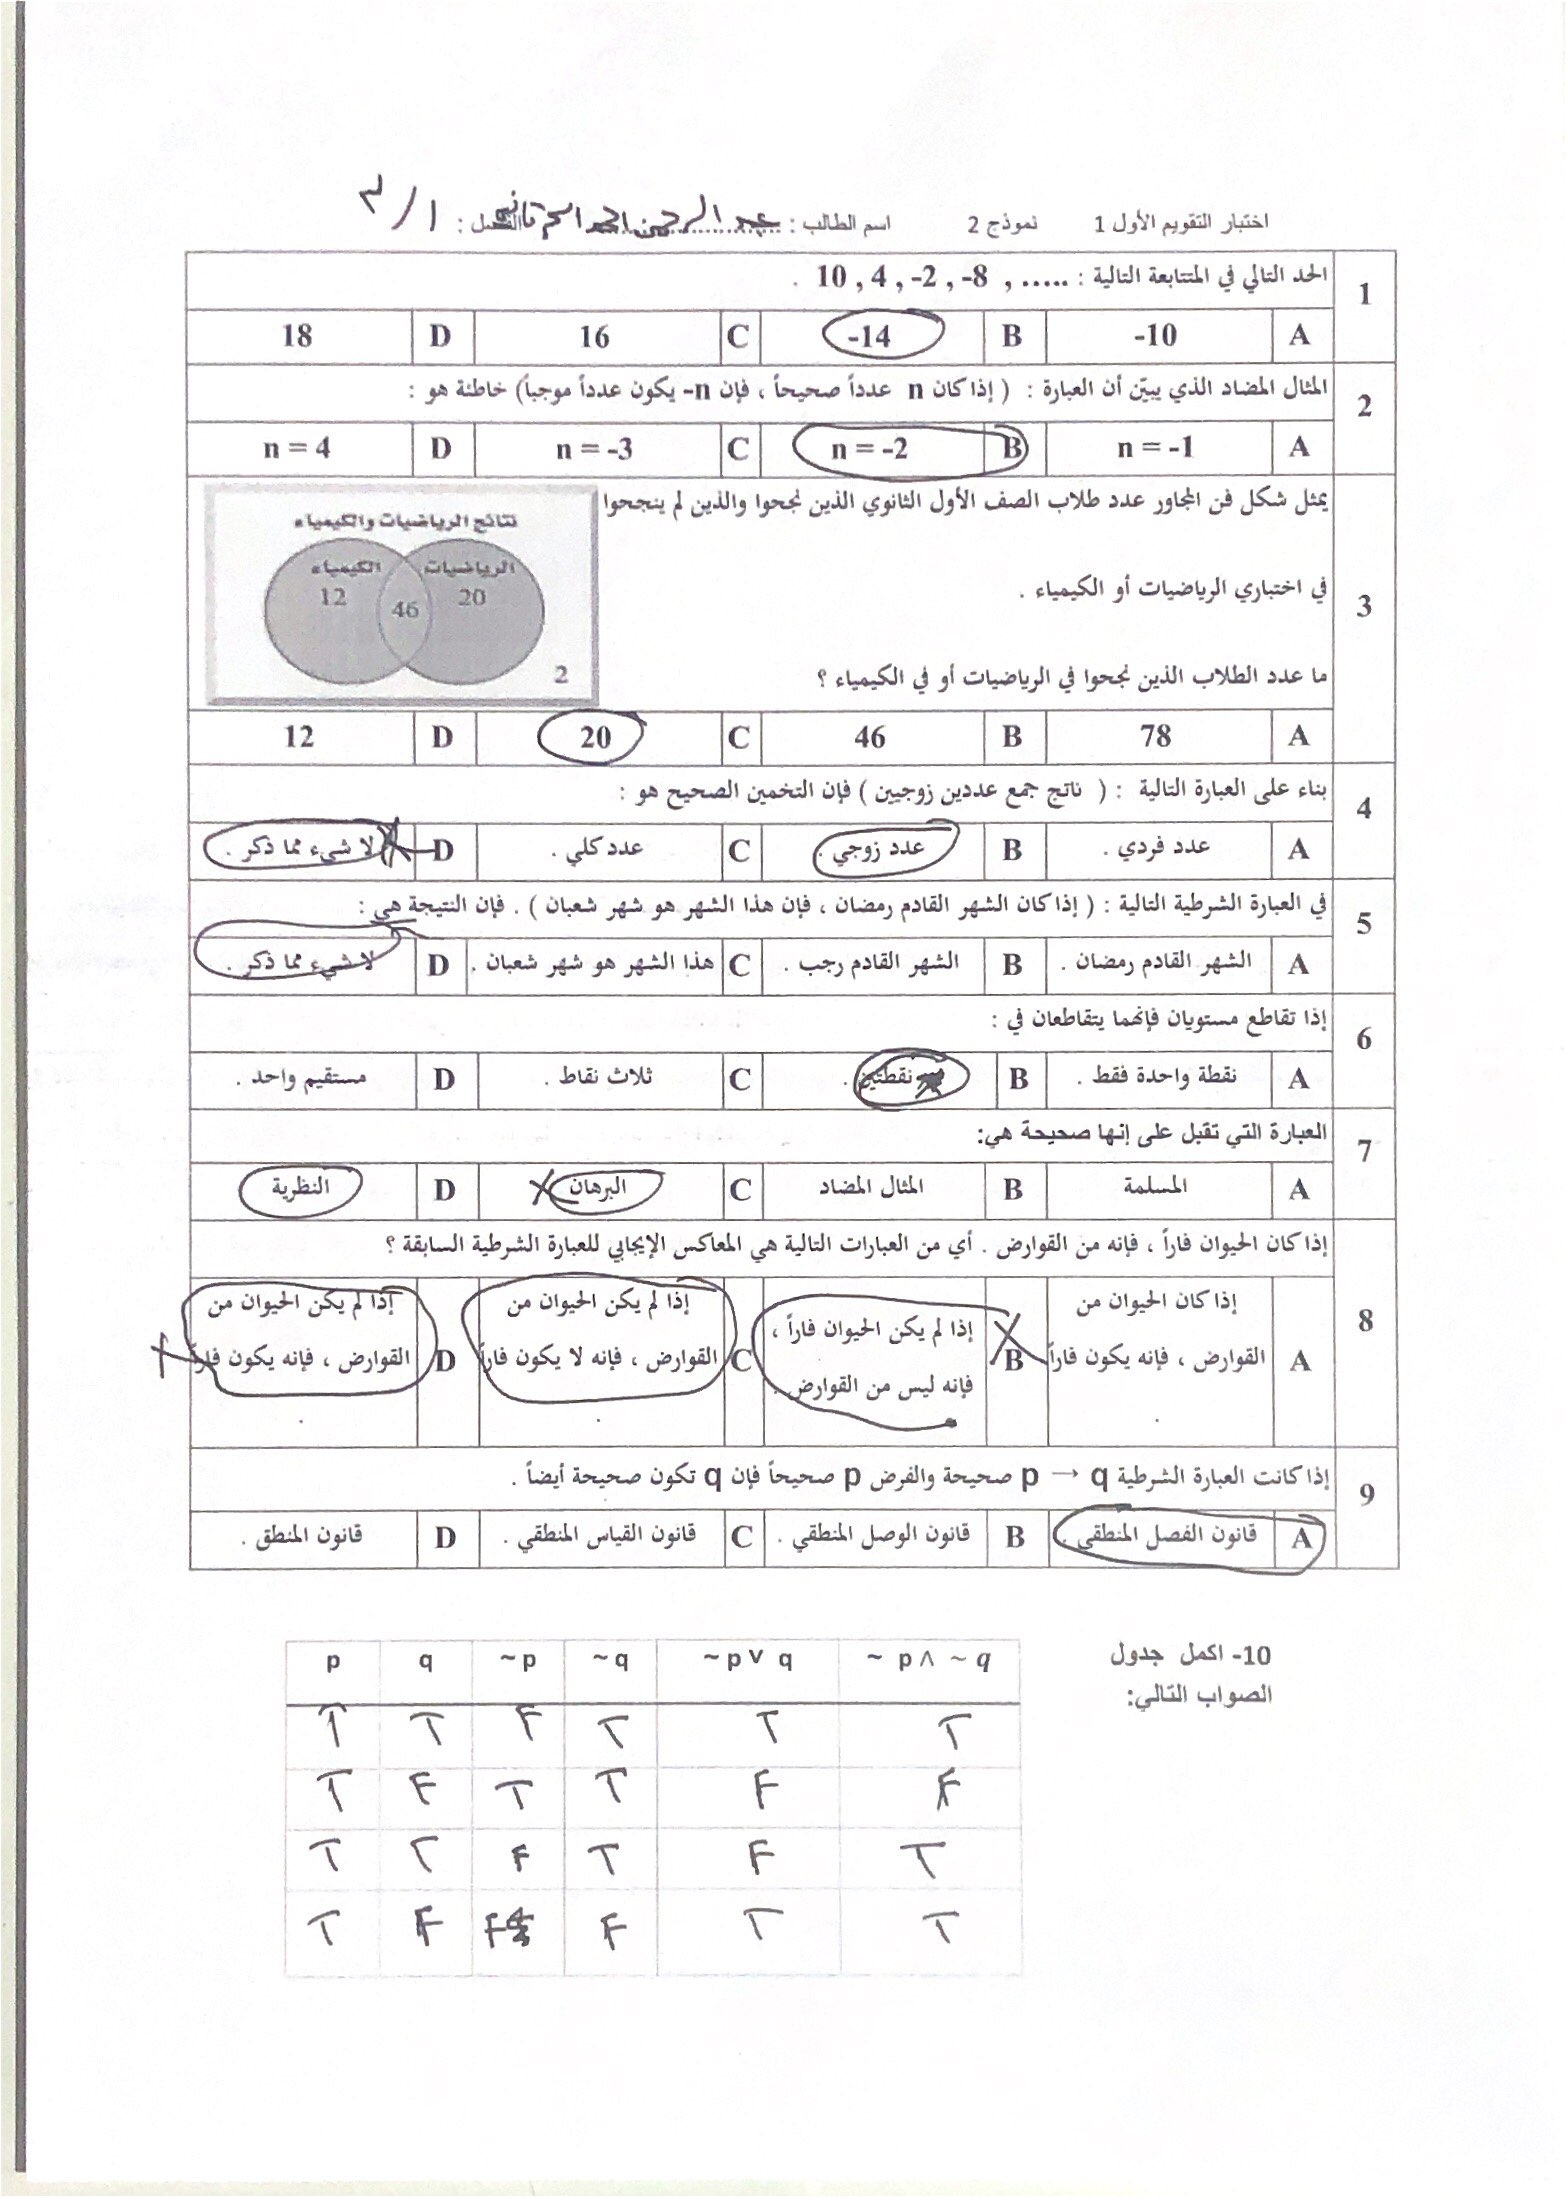 اختبار التقويم الأول 1 نموذج 2 اسم الطالب : عبد الرحمن احمد الفصل : ١ / ٣
1 الحد التالي في المتتابعة التالية : 10 , 4 , -2 , -8 , ..... .
A -10 B -14 C 16 D 18
2 المثال المضاد الذي يبيّن أن العبارة : ( إذا كان n عدداً صحيحاً ، فإن n- يكون عدداً موجباً) خاطئة هو :
A n = -1 B n = -2 C n = -3 D n = 4
3 يمثل شكل فن المجاور عدد طلاب الصف الأول الثانوي الذين نجحوا والذين لم ينجحوا
في اختباري الرياضيات أو الكيمياء .
ما عدد الطلاب الذين نجحوا في الرياضيات أو في الكيمياء ؟
نتائج الرياضيات والكيمياء
الرياضيات الكيمياء
20 46 12
2
A 78 B 46 C 20 D 12
4 بناء على العبارة التالية : ( ناتج جمع عددين زوجيين ) فإن التخمين الصحيح هو :
A عدد فردي . B عدد زوجي . C عدد كلي . D لا شيء مما ذكر .
5 في العبارة الشرطية التالية : ( إذا كان الشهر القادم رمضان ، فإن هذا الشهر هو شهر شعبان ) . فإن النتيجة هي :
A الشهر القادم رمضان . B الشهر القادم رجب . C هذا الشهر هو شهر شعبان . D لا شيء مما ذكر .
6 إذا تقاطع مستويان فإنهما يتقاطعان في :
A نقطة واحدة فقط . B نقطتين . C ثلاث نقاط . D مستقيم واحد .
7 العبارة التي تقبل على إنها صحيحة هي:
A المسلمة B المثال المضاد C البرهان D النظرية
8 إذا كان الحيوان فاراً ، فإنه من القوارض . أي من العبارات التالية هي المعاكس الإيجابي للعبارة الشرطية السابقة ؟
A إذا كان الحيوان من القوارض ، فإنه يكون فاراً . B إذا لم يكن الحيوان فاراً ، فإنه ليس من القوارض . C إذا لم يكن الحيوان من القوارض ، فإنه لا يكون فاراً . D إذا لم يكن الحيوان من القوارض ، فإنه يكون فاراً .
9 إذا كانت العبارة الشرطية p → q صحيحة والفرض p صحيحاً فإن q تكون صحيحة أيضاً .
A قانون الفصل المنطقي . B قانون الوصل المنطقي . C قانون القياس المنطقي . D قانون المنطق .
10- اكمل جدول
الصواب التالي:
p q ~p ~q ~p ∨ q ~ p ∧ ~ q
T T F T T T
T F T T F F
T T F T F T
T F F F T T